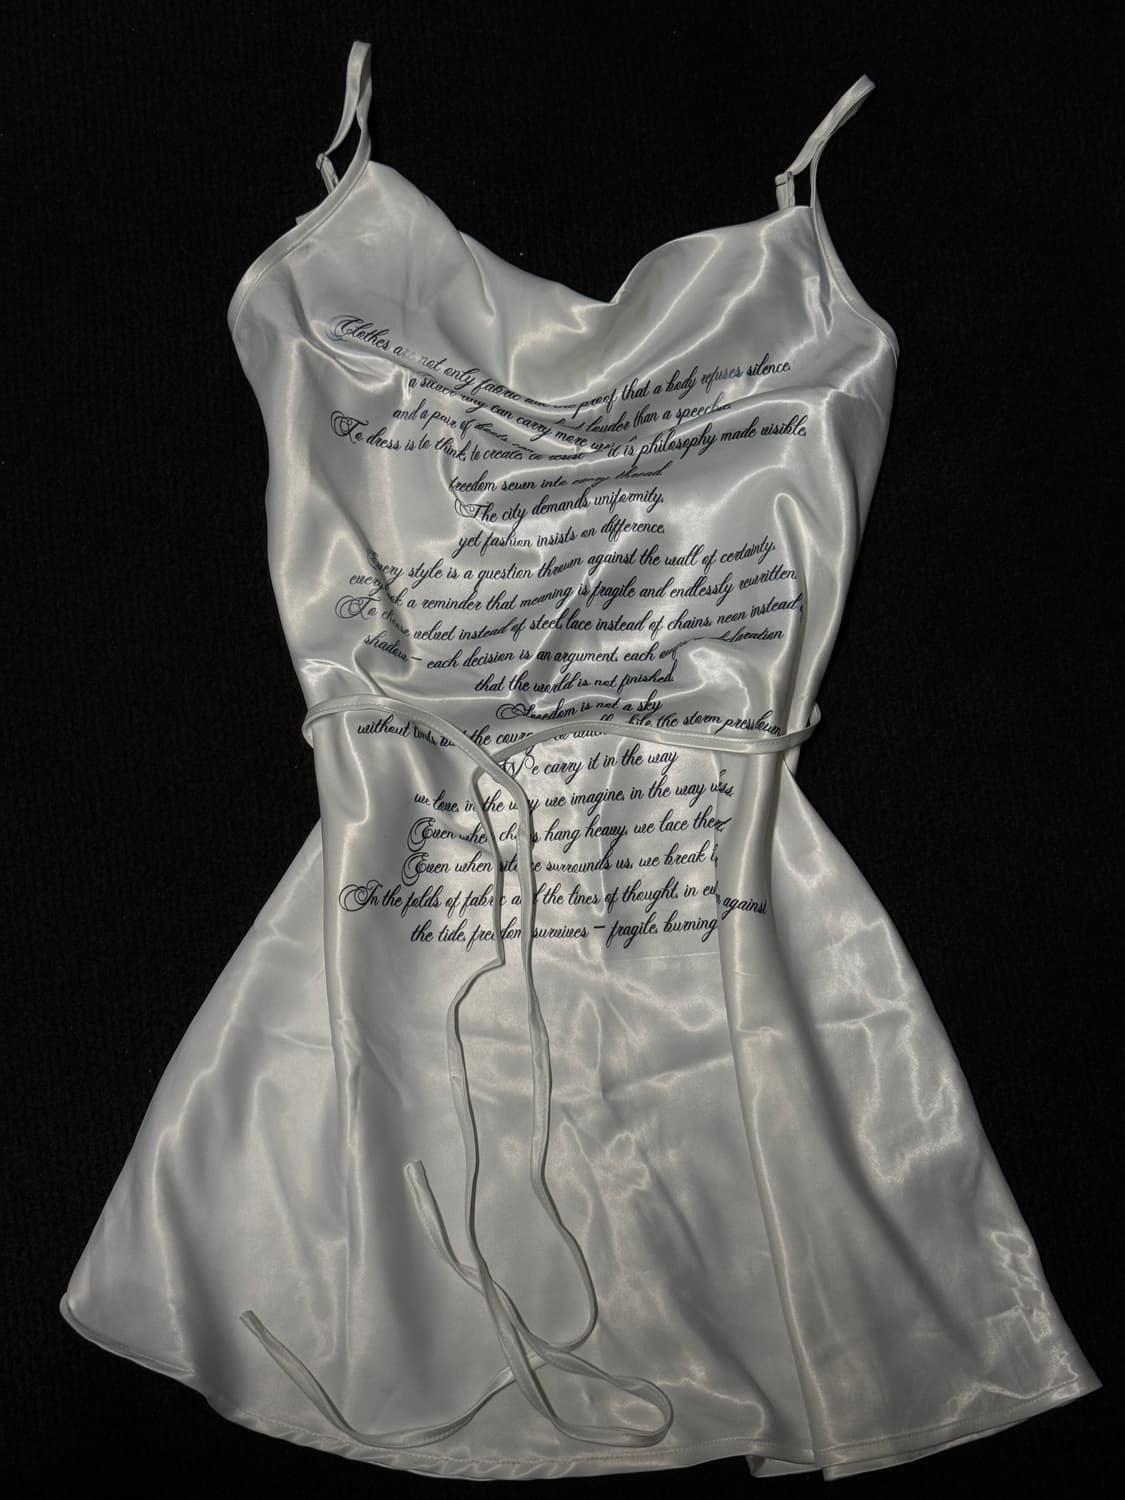 Clothes are not only fabric proof that a body refuses silence.
a can carry more louder than a speeches.
and a pair of
To dress is to think, to create, to resist it is philosophy made visible,
freedom sewn into every thread.
The city demands uniformity,
yet fashion insists on difference.
Every style is a question thrown against the wall of certainty,
every a reminder that meaning is fragile and endlessly rewritten.
To choose velvet instead of steel, lace instead of chains, neon instead
shadow – each decision is an argument, each
that the world is not finished.
Freedom is not a sky
without the the storm presses
We carry it in the way
we love, in the way we imagine, in the way
Even when chains hang heavy, we lace
Even when silence surrounds us, we break
In the folds of fabric the lines of thought, in against
the tide, freedom survives – fragile, burning